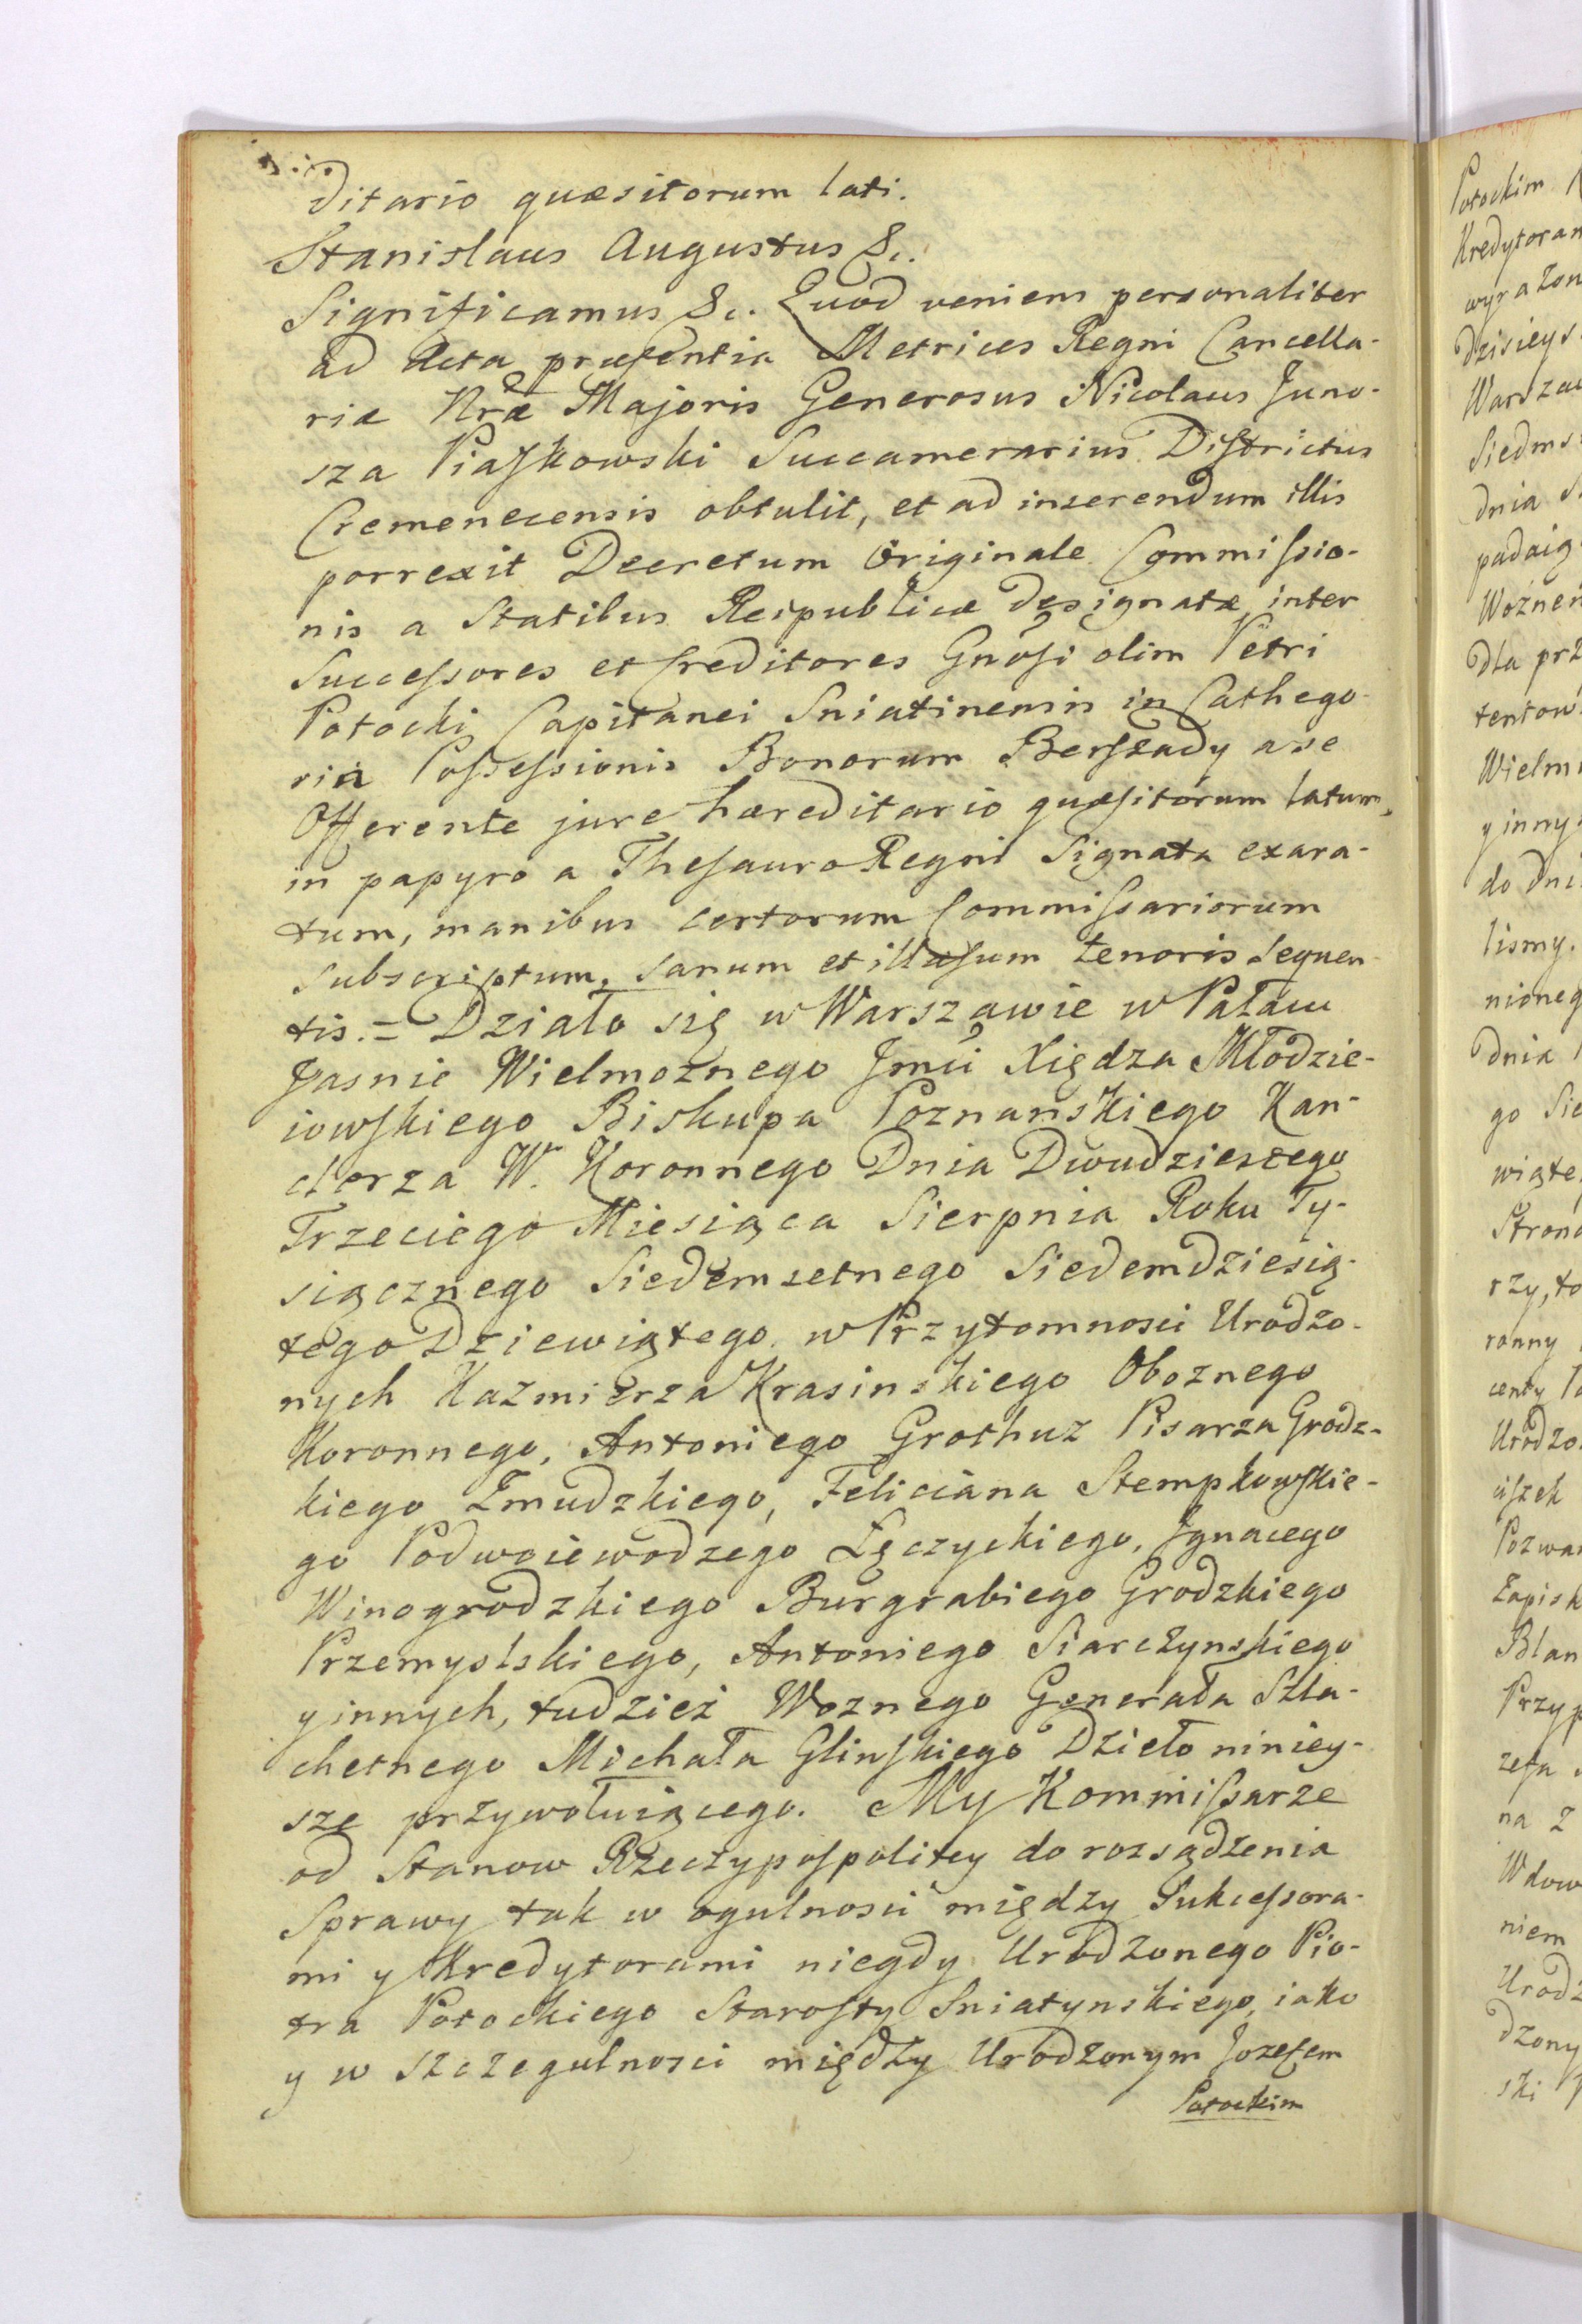 ditario quæsitorum lati.
Stanislaus Augustus &c.
Significamus &c. Quod veniens personaliter
ad Acta præsentia Metrices Regni Cancella-
riæ Nræ Majoris Generosus Nicolaus Juno-
sza Piaskowski Succamerarius Districtus
Cremenecensis obtulit, et ad inserendum illis
porrexit Decretum Originale Commissio-
nis a Statibus Reipublicæ designatæ inter
Successores et Creditores Gnosi olim Petri
Potocki Capitanei Sniatinensis in Cathego-
ria Possessionis Bonorum Berszady a se
Offerente jure hæreditario quæsitorum latum,
in papyro a Thesauro Regni Signata exara-
tum, manibus certorum Commissariorum
subscriptum, sanum et illæsum tenoris sequen-
tis. = Działo się w Warszawie w Pałacu
Jasnie Wielmożnego Jmci Xiędza Młodzie-
iowskiego Biskupa Poznanskiego Kan-
clerza W. Koronnego Dnia Dwudziestego
Trzeciego Miesiąca Sierpnia Roku Ty-
siącznego Siedemsetnego Siedemdziesią-
tego Dziewiątego w Przytomnosci Urodzo-
nych Kazmierza Krasinskiego Oboznego
Koronnego, Antoniego Grothuz Pisarza Grodz-
kiego Zmudzkiego, Feliciana Stempkowskie-
go Podwoiewodzego Łęczyckiego, Jgnacego
Winogrodzkiego Burgrabiego Grodzkiego
Przemyslskiego, Antoniego Siarczynskiego
y innych, tudzież Woznego Generała Szla-
chetnego Michała Glinskiego Dzieło niniey-
sze przywołuiącego. My Kommissarze
od Stanow Rzeczypospolitey do rozsądzenia
Sprawy tak w ogulnosci między Sukcessora-
mi y Kredytorami niegdy Urodzonego Pio-
tra Potockiego Starosty Sniatynskiego, iako
y w szczegulnosci między Urodzonym Jozefem
Potockim
Potockim
Kredytoram
wyrażon
dzisieys
Warszaw
Siedms
dnia
Woznen
dla prz
tentow
Wielm
y inny
do dni
lismy.
nioneg
dnia
go Sie
wiąte
Stron
rzy, to
ronny
centy
Urodzo
Pozwan
Zapisk
Blan
Przyp
zefa
na Z
Wdow
niem
Urodz
dzony
ski